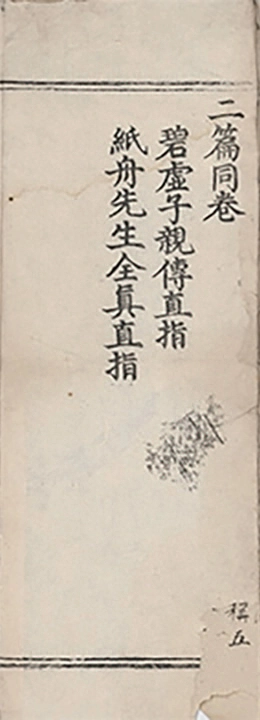 二篇同卷
碧虛子親傳直指
紙舟先生全眞直指
稱五